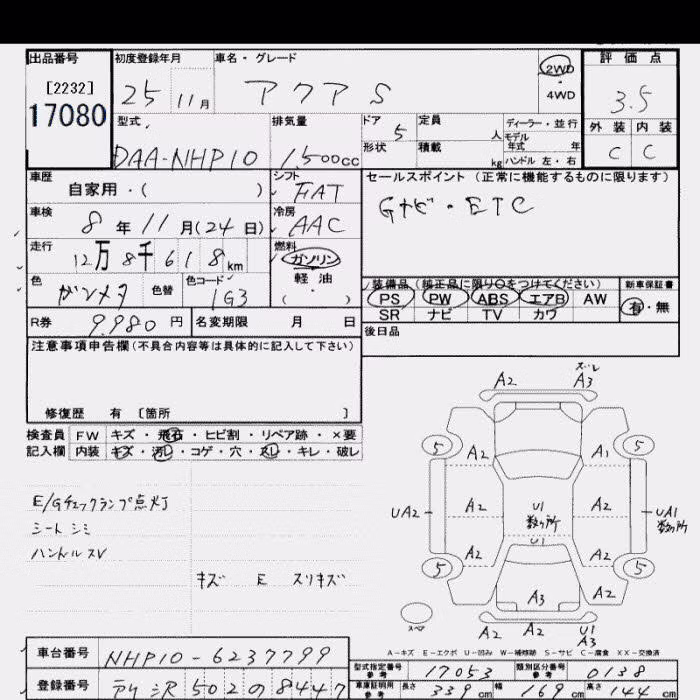 出品番号 初度登録年月 車名・グレード 2WD・4WD 評価点
[2232]
17080
25 11月 アクア S 3.5
型式 排気量 ドア 5 定員 人 ディーラー・並行 外装 内装
モデル年式 年
DAA-NHP10 1500cc 形状 積載 kg ハンドル 左・右 C C
車歴 シフト セールスポイント (正常に機能するものに限ります)
自家用・( ) FAT Gナビ・ETC
車検 8年11月(24日) 冷房 AAC
走行 12万8千618km 燃料 ガソリン
軽油
( )
色 ガンメタ 色替 色コード 1G3
装備品 (純正品に限り○をつけてください) 新車保証書
PS PW ABS エアB AW 有・無
SR ナビ TV カワ
R券 9,980円 名変期限 月 日 後日品
注意事項申告欄(不具合内容等は具体的に記入して下さい)
修復歴 有 [箇所 ]
検査員 FW キズ・飛石・ヒビ割・リペア跡・×要
記入欄 内装 キズ・汚レ・コゲ・穴・スレ・キレ・破レ
E/Gチェックランプ点灯
シート シミ
ハンドル スレ
キズ E スリキズ
A2 ズレ A3
5 A2 A1 5
UA2 A2 U1 数ヶ所 A2 UA1 数ヶ所
A2 U1 A2
5 5
A3 A2
スペア A2 A2 U1 A3
A-キズ E-エクボ U-凹み W-補修跡 S-サビ C-腐食 XX-交換済
車台番号 NHP10-6237799
型式指定番号 参考 17053 類別区分番号 参考 0138
登録番号 502 8447
車庫証明用 参考 長さ 339cm 幅 169cm 高さ 144cm